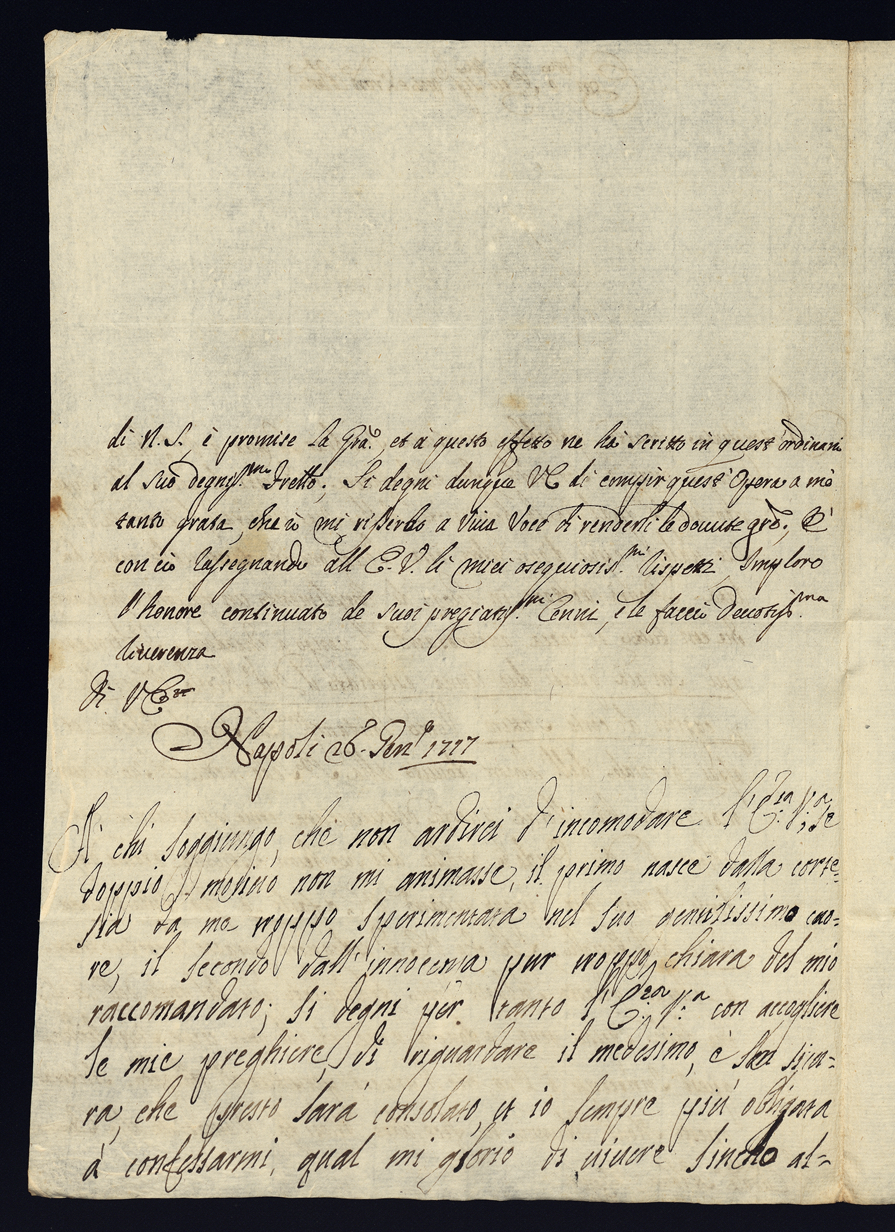 di N. S., è promise la Gra., et à questo effetto ne ha scritto in quest' ordinario
al suo degnis.mo Fretto; Si degni dunque VE di compir quest' Opera a me
tanto grata, che io mi riserbo a viva voce di renderli le dovute gre.; E'
con ciò rassegnando all' E. V. li miei osequiosis.mi rispetti, Imploro
l' honore continuato de suoi pregiatis.mi Cenni, e le faccio devotis.ma
riverenza
Di VE
Napoli 26. Gen.o 1717
A' chi soggiungo, che non ardirei d' incomodare l' E.za V.a se
doppio motivo non mi animasse, il primo nasce dalla corte-
sia da me troppo sperimentata nel suo gentilissimo cuo-
re, il secondo dall' innocenza pur troppo chiara del mio
raccomandato; Si degni per tanto l' E.za V.a con accogliere
le mie preghiere, di riguardare il medesimo, è son sicu-
ra, che presto sarà consolato, et io sempre più obligata
à confessarmi, qual mi glorio di vivere sincho al-